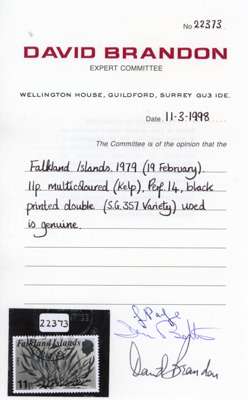 No 22373
DAVID BRANDON
EXPERT COMMITTEE
WELLINGTON HOUSE, GUILDFORD, SURREY GU3 1DE.
Date 11-3-1998
The Committee is of the opinion that the
Falkland Islands. 1979 (19 February).
11p multicoloured (Kelp), Perf. 14, black
printed double (S.G. 357 Variety) used
is genuine.
22373
Falkland Islands
11p
David Brandon